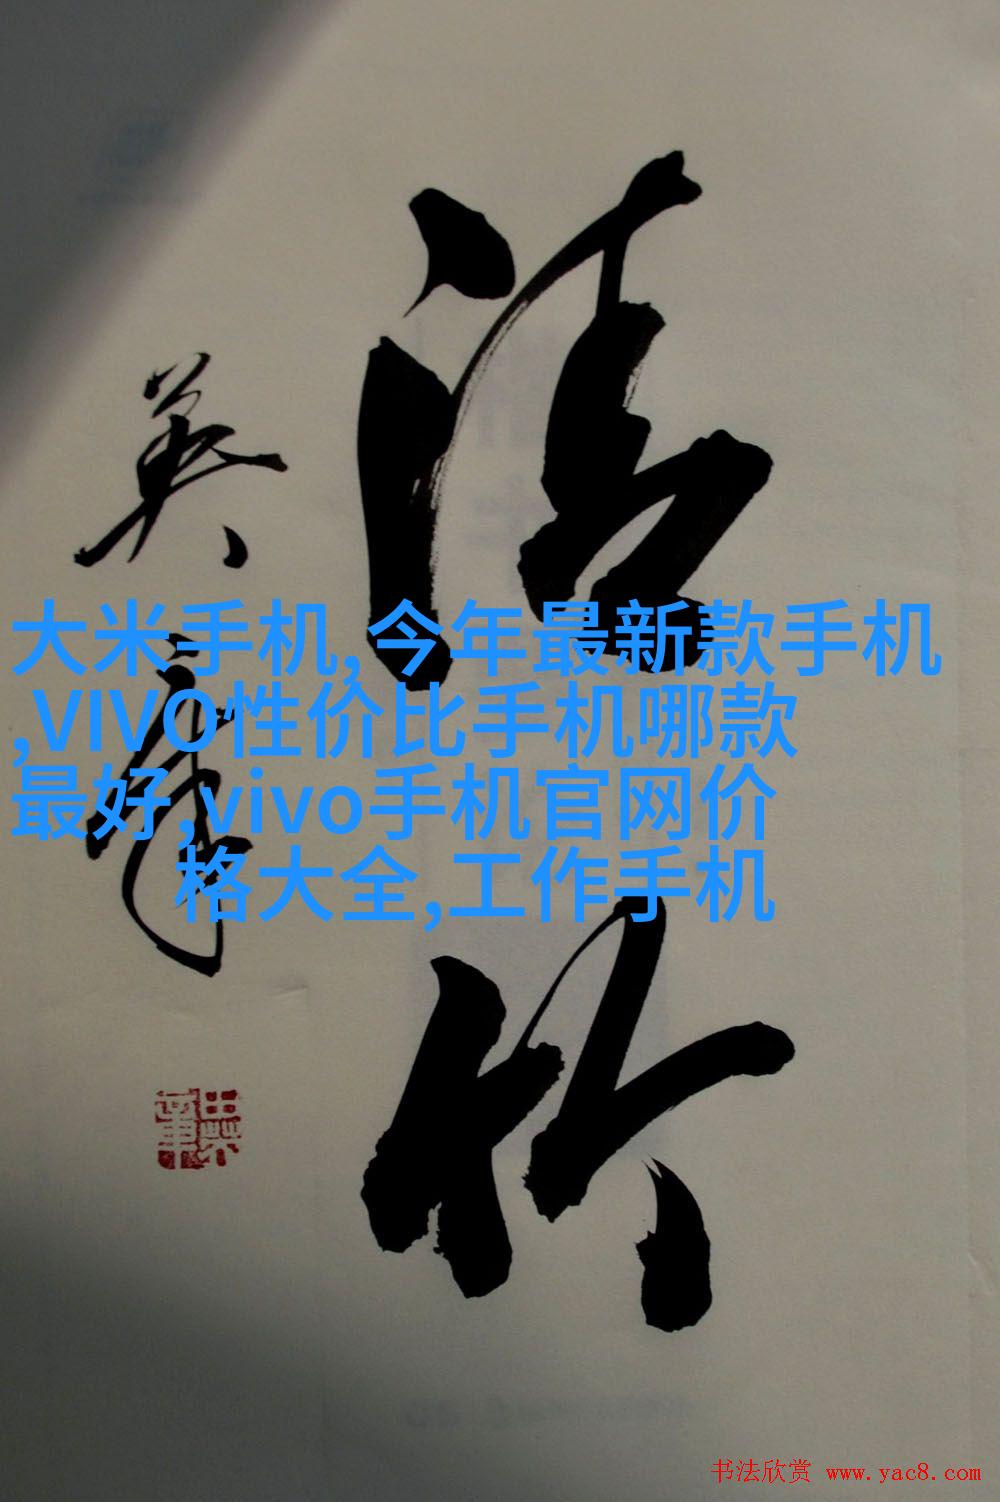 竹
英章
田英章
大米手机,今年最新款手机
,VIVO性价比手机哪款
最好,vivo手机官网价
格大全,工作手机
书法欣赏 www.yac8.com